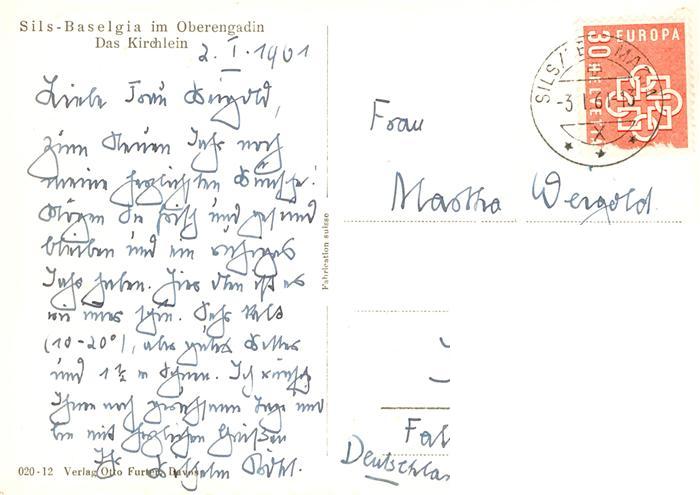 Sils-Baselgia im Oberengadin
Das Kirchlein
2. I. 1961
Liebe Frau Weigold,
zum Neuen Jahr noch
meine herzlichsten Wünsche!
Mögen Sie frisch und gesund
bleiben und ein ruhiges
Jahr haben. Hier oben ist es
wie immer schön. Sehr kalt
(10-20°), aber gutes Wetter
und 1½ m Schnee. Ich wünsche
Ihnen noch geruhsame Tage und
bin mit herzlichen Grüßen
Ihr Wilhelm
020-12 Verlag Otto Furter, Davos
Fabrication suisse
EUROPA
30 HELVETIA
SILS/
-3.I.61-13
X
Frau
Martha Weigold
Deutschla